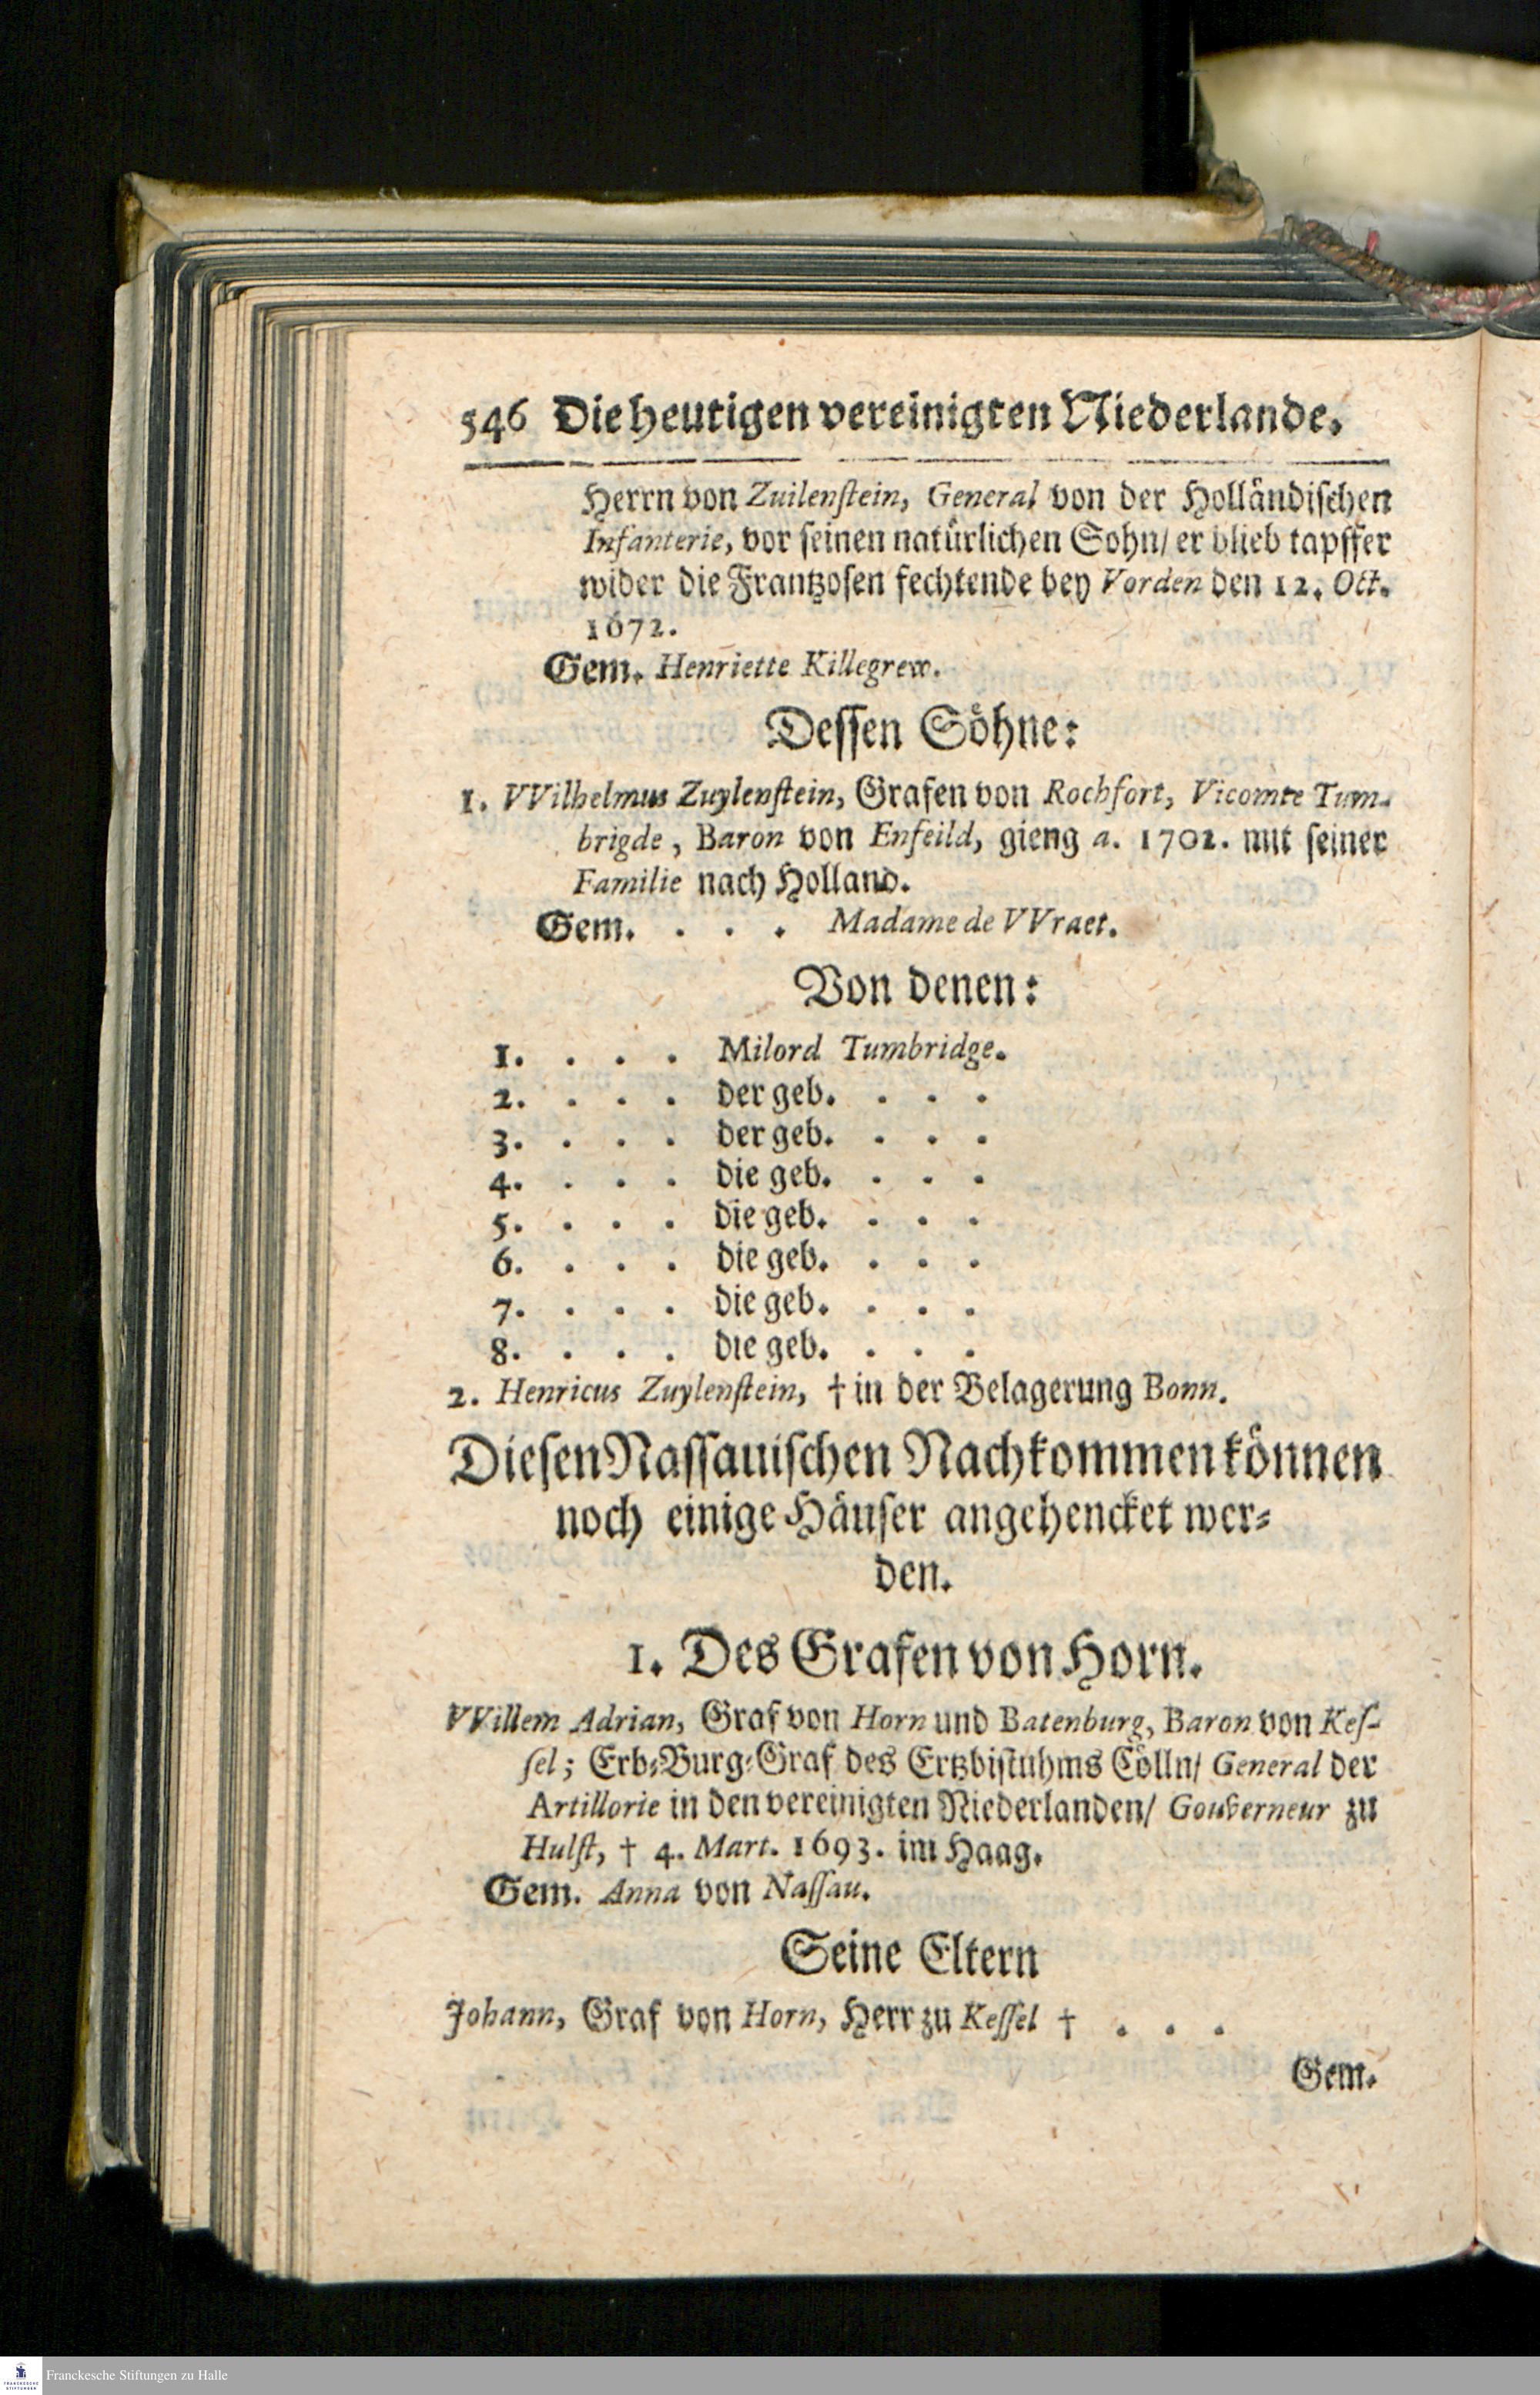 546 Die heutigen vereinigten Niederlande.
Herrn von Zuilenstein, General von der Holländischen
Infanterie, vor seinen natürlichen Sohn/ er blieb tapffer
wider die Frantzosen fechtende bey Vorden den 12. Oct.
1672.
Gem. Henriette Killegrew.
Dessen Söhne:
1. VVilhelmus Zuylenstein, Grafen von Rochfort, Vicomte Tum-
brigde, Baron von Enfeild, gieng a. 1702. mit seiner
Familie nach Holland.
Gem. . . . Madame de VVraet.
Von denen:
1. . . . Milord Tumbridge.
2. . . . der geb. . . .
3. . . . der geb. . . .
4. . . . die geb. . . .
5. . . . die geb. . . .
6. . . . die geb. . . .
7. . . . die geb. . . .
8. . . . die geb. . . .
2. Henricus Zuylenstein, † in der Belagerung Bonn.
Diesen Nassauischen Nachkommen können
noch einige Häuser angehencket wer-
den.
1. Des Grafen von Horn.
VVillem Adrian, Graf von Horn und Batenburg, Baron von Kes-
sel; Erb-Burg-Graf des Ertzbistuhms Cölln/ General der
Artillorie in den vereinigten Niederlanden/ Gouverneur zu
Hulst, † 4. Mart. 1693. im Haag.
Gem. Anna von Nassau.
Seine Eltern
Johann, Graf von Horn, Herr zu Kessel † . . .
Gem.
Franckesche Stiftungen zu Halle
FRANCKESCHE
STIFTUNGEN